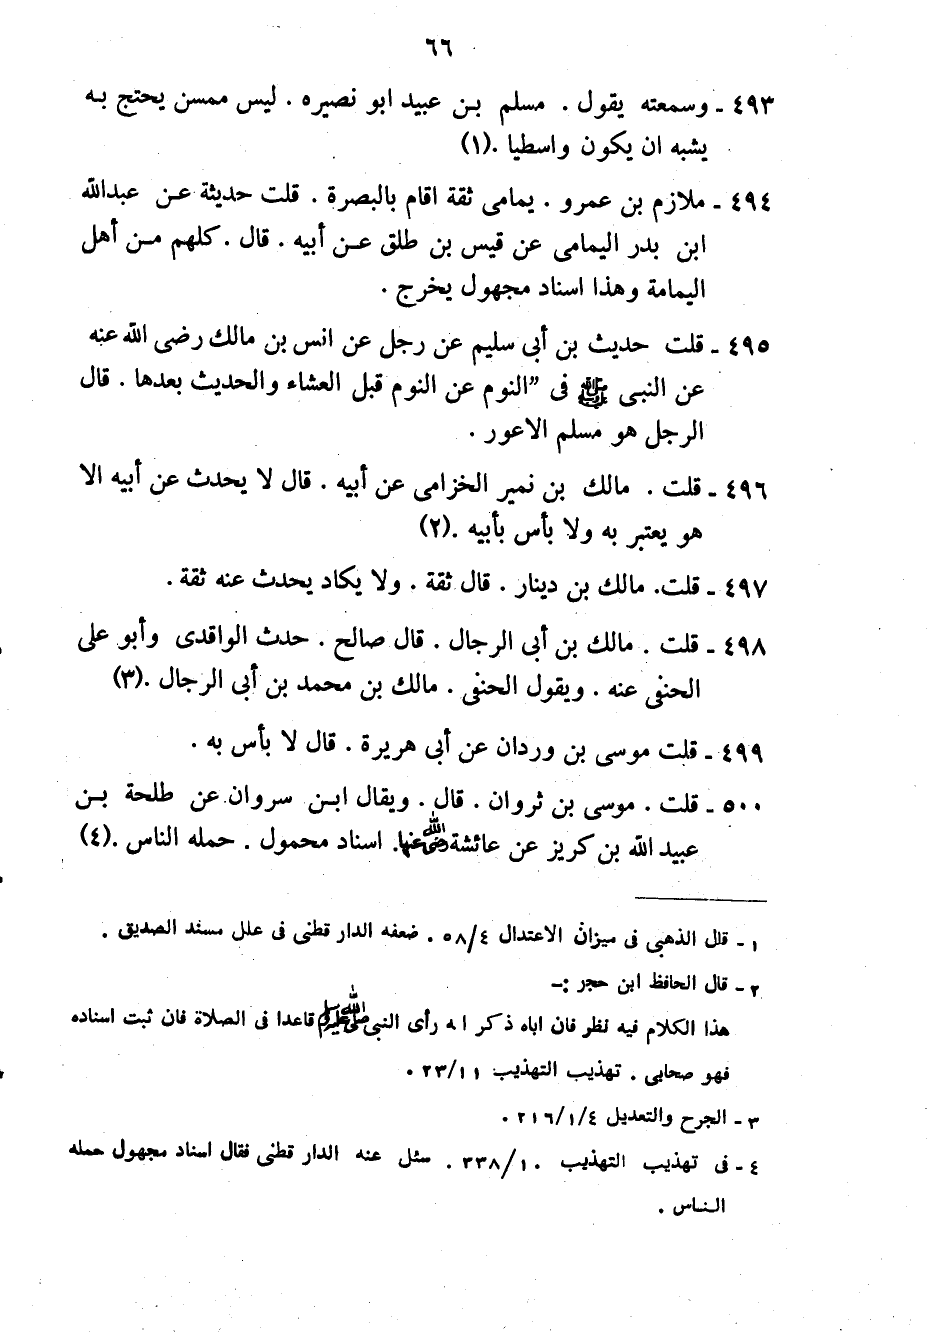 ٦٦
٤٩٣ ـ وسمعته يقول . مسلم بـن عبيد ابو نصيره . ليس ممسن يحتج بـه
يشبه ان يكون واسطيا .(١)
٤٩٤ ـ ملازم بن عمرو . يمامى ثقة اقام بالبصرة . قلت حديثة عـن عبدالله
ابن بدر اليمامى عن قيس بن طلق عـن أبيه . قال . كلهم مـن أهل
اليمامة وهذا اسناد مجهول يخرج .
٤٩٥ ـ قلت حديث بن أبى سليم عن رجل عن انس بن مالك رضى الله عنه
عن النبـى ﷺ فى "النوم عن النوم قبل العشاء والحديث بعدها . قال
الرجل هو مسلم الاعور .
٤٩٦ ـ قلت . مالك بن نمير الخزامى عن أبيه . قال لا يحدث عن أبيه الا
هو يعتبر به ولا بأس بأبيه .(٢)
٤٩٧ ـ قلت. مالك بن دينار . قال ثقة . ولا يكاد يحدث عنه ثقة .
٤٩٨ ـ قلت . مالك بن أبى الرجال . قال صالح . حدث الواقدى وأبو على
الحنفى عنه . ويقول الحنفى . مالك بن محمد بن أبى الرجال .(٣)
٤٩٩ ـ قلت موسى بن وردان عن أبى هريرة . قال لا بأس به .
٥٠٠ ـ قلت . موسى بن ثروان . قال . ويقال ابـن سروان عن طلحة بـن
عبيد الله بن كريز عن عائشة رضى الله عنها. اسناد محمول . حمله الناس .(٤)
١ ـ قال الذهبى فى ميزان الاعتدال ٥٨/٤ . ضعفه الدار قطنى فى علل مسند الصديق .
٢ ـ قال الحافظ ابن حجر :ـ
هذا الكلام فيه نظر فان اباه ذكر ا ه رأى النبى ﷺ قاعدا فى الصلاة فان ثبت اسناده
فهو صحابى . تهذيب التهذيب ٢٣/١١ .
٣ ـ الجرح والتعديل ٢١٦/١/٤ .
٤ ـ فى تهذيب التهذيب ٣٣٨/١٠ . سئل عنه الدار قطنى فقال اسناد مجهول حمله
الـنـاس .